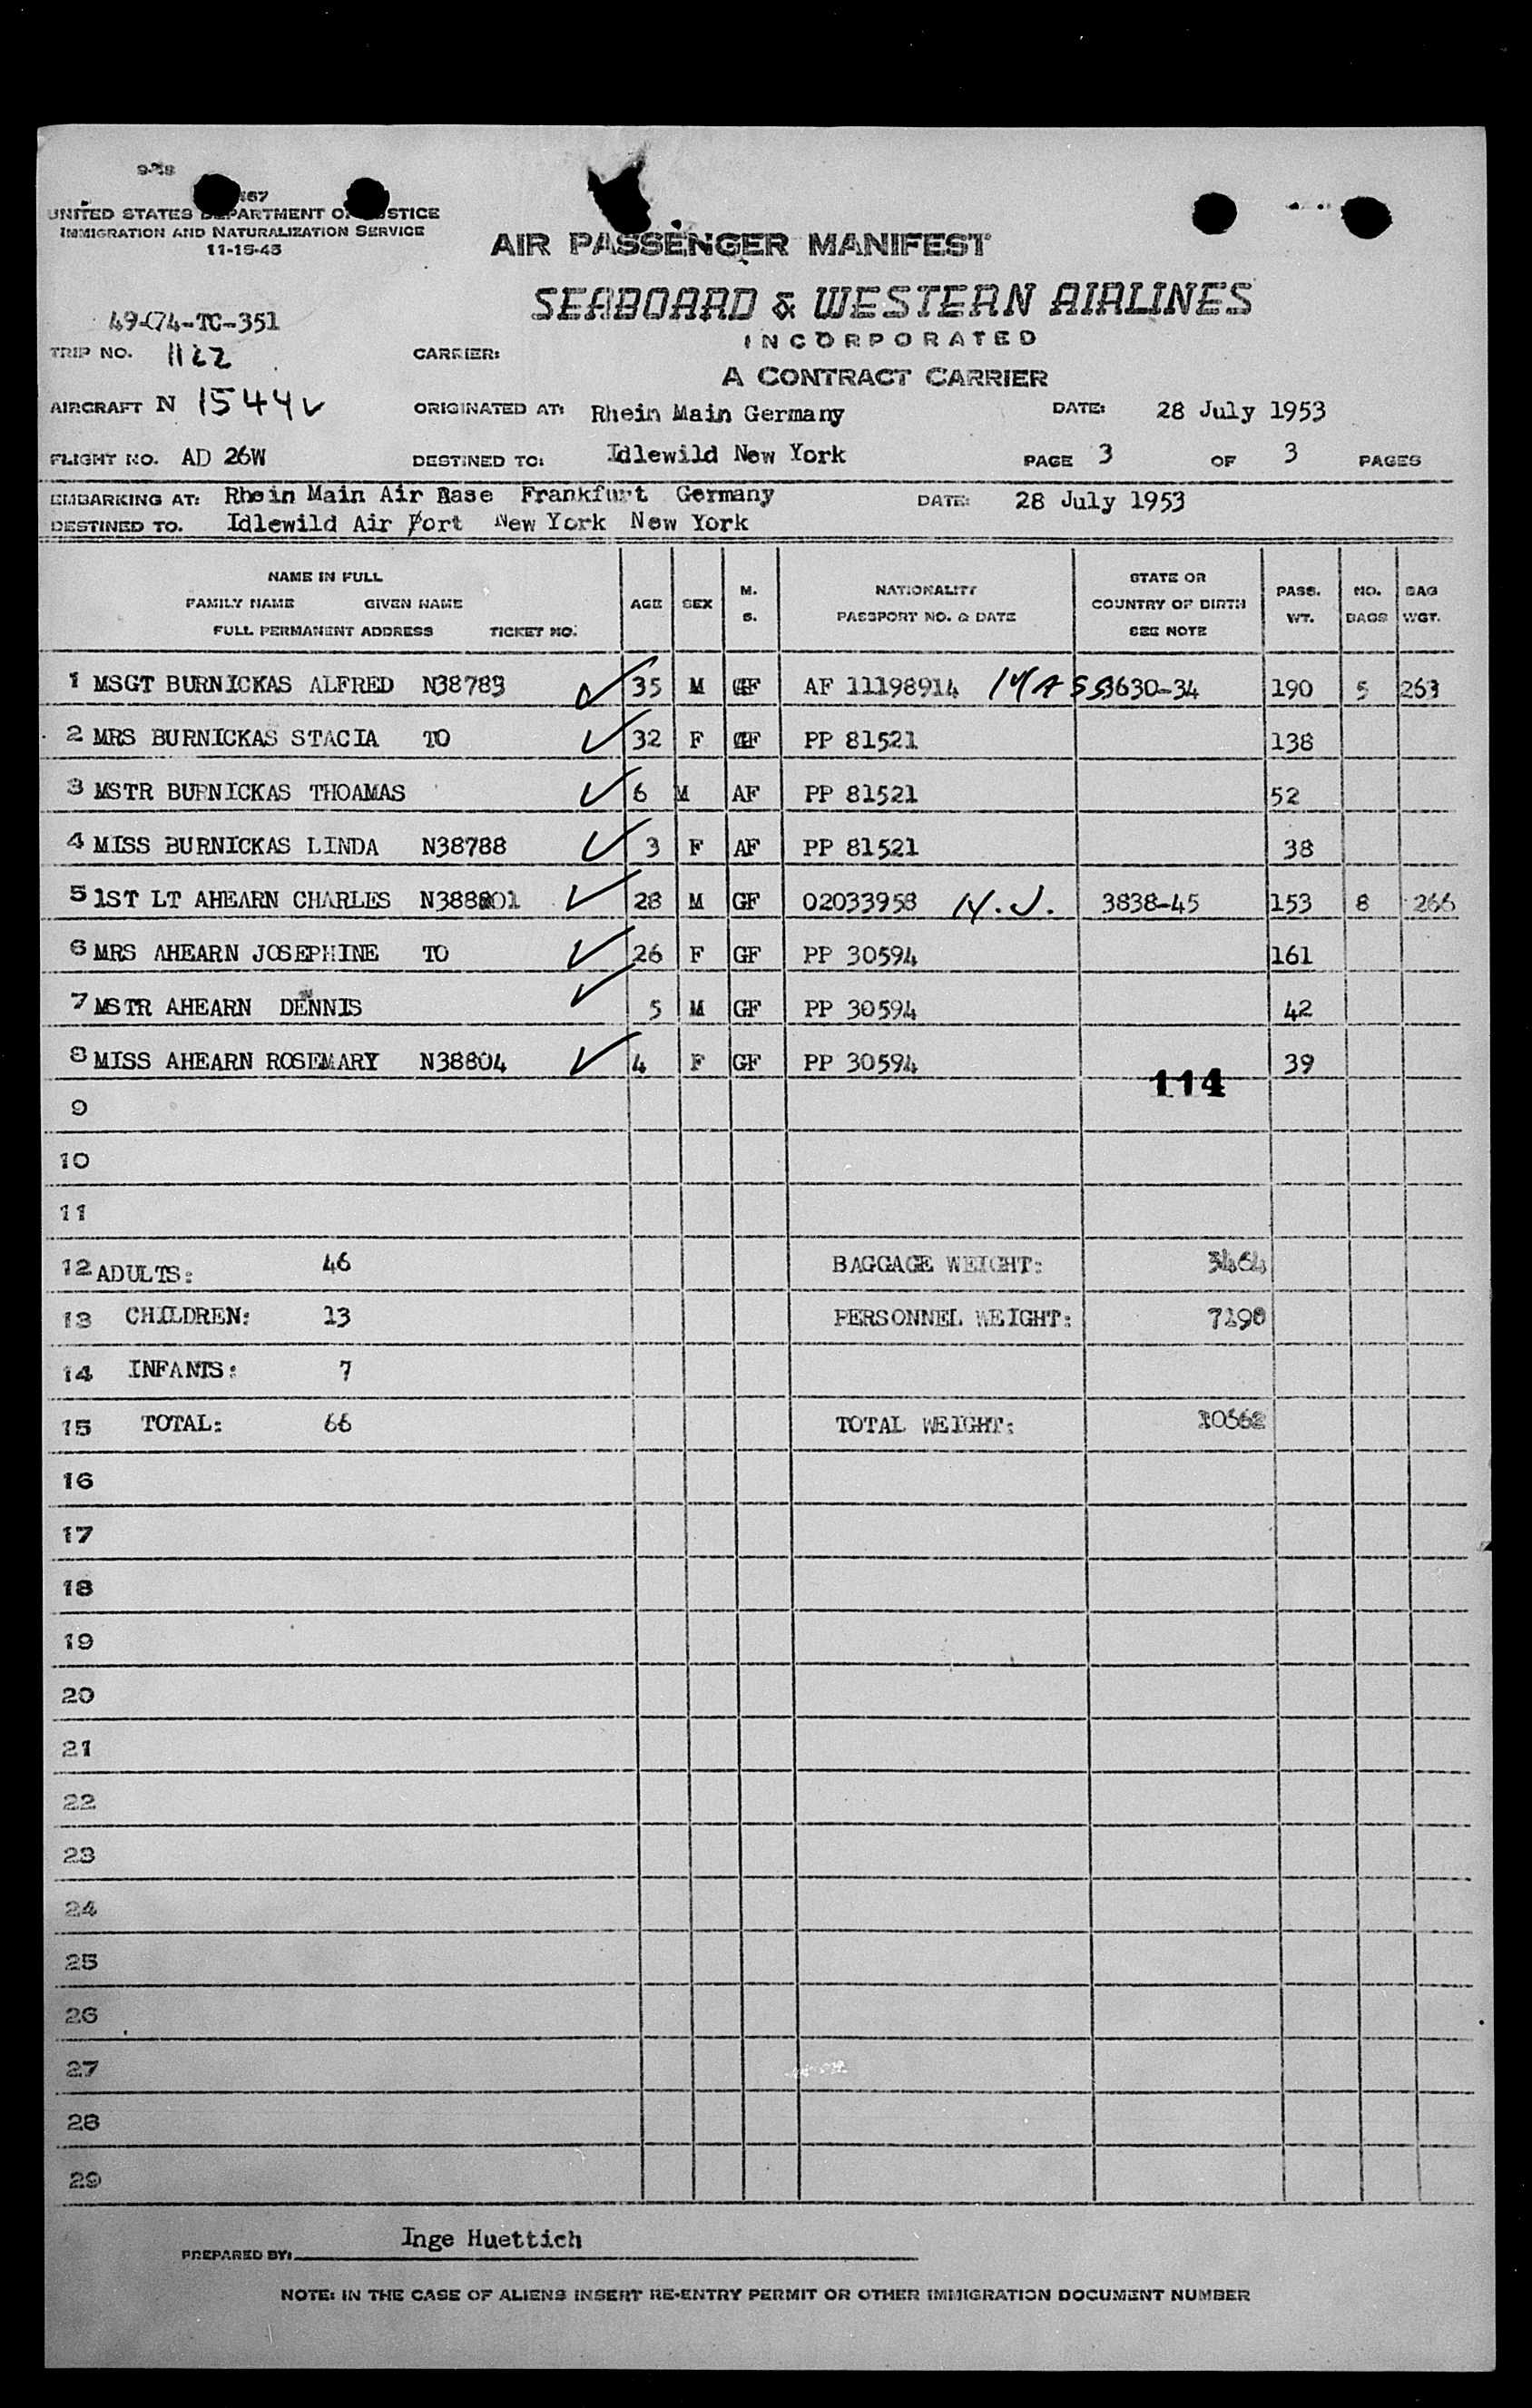 9-48
UNITED STATES DEPARTMENT OF JUSTICE
IMMIGRATION AND NATURALIZATION SERVICE
11-15-45
AIR PASSENGER MANIFEST
SEABOARD & WESTERN AIRLINES
INCORPORATED
A CONTRACT CARRIER
49-C74-TC-351
TRIP NO. 1122 CARRIER:
AIRCRAFT N 1544V ORIGINATED AT: Rhein Main Germany DATE: 28 July 1953
FLIGHT NO. AD 26W DESTINED TO: Idlewild New York PAGE 3 OF 3 PAGES
EMBARKING AT: Rhein Main Air Base Frankfurt Germany DATE: 28 July 1953
DESTINED TO. Idlewild Air Port New York New York
NAME IN FULL
FAMILY NAME GIVEN NAME
FULL PERMANENT ADDRESS TICKET NO. AGE SEX M. S. NATIONALITY PASSPORT NO. & DATE STATE OR COUNTRY OF BIRTH SEE NOTE PASS. WT. NO. BAGS BAG WGT.
1 MSGT BURNICKAS ALFRED N38783 35 M AF 11198914 MASS 3630-34 190 5 263
2 MRS BURNICKAS STACIA TO 32 F PP 81521 138
3 MSTR BURNICKAS THOAMAS 6 M AF PP 81521 52
4 MISS BURNICKAS LINDA N38788 3 F AF PP 81521 38
5 1ST LT AHEARN CHARLES N38801 28 M GF 02033958 N.J. 3838-45 153 8 266
6 MRS AHEARN JOSEPHINE TO 26 F GF PP 30594 161
7 MSTR AHEARN DENNIS 5 M GF PP 30594 42
8 MISS AHEARN ROSEMARY N38804 4 F GF PP 30594 39
114
9
10
11
12 ADULTS: 46 BAGGAGE WEIGHT: 3464
13 CHILDREN: 13 PERSONNEL WEIGHT: 7198
14 INFANTS: 7
15 TOTAL: 66 TOTAL WEIGHT: 10662
16
17
18
19
20
21
22
23
24
25
26
27
28
29
PREPARED BY: Inge Huettich
NOTE: IN THE CASE OF ALIENS INSERT RE-ENTRY PERMIT OR OTHER IMMIGRATION DOCUMENT NUMBER